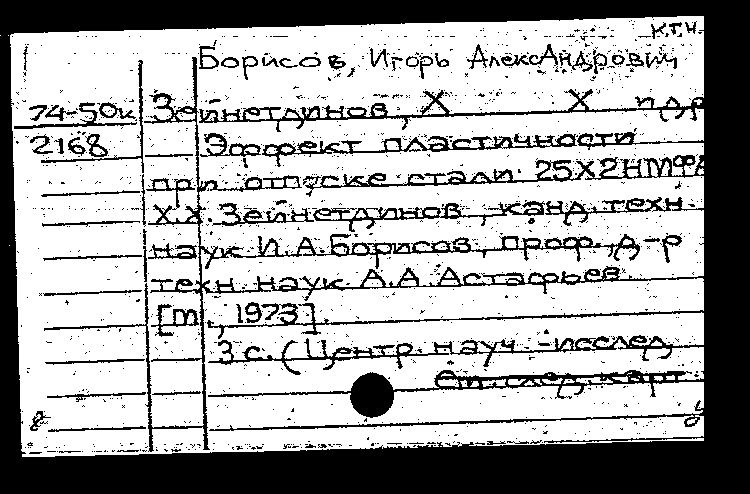 К.Т.Н.
Борисов, Игорь Александрович
74-50к Зейнетдинов, Х Х и др
2168 Эффект пластичности
при отпуске стали 25Х2НМФА
Х.Х. Зейнетдинов, канд. техн.
наук И.А. Борисов, проф., д-р
техн. наук А.А. Астафьев
[м., 1973].
3 с. (Центр. науч.-исслед
см. след. карт.